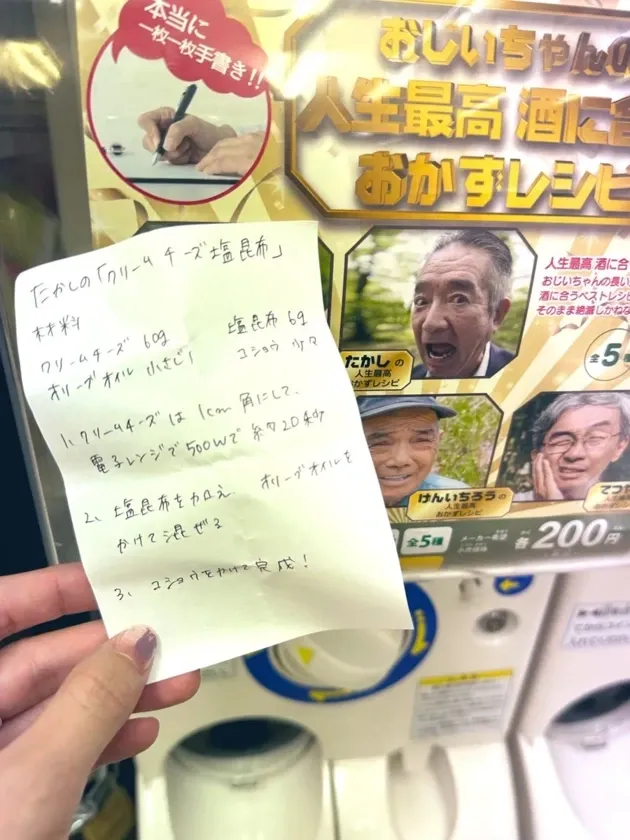 本当に
一枚一枚手書き!!
おじいちゃんの
人生最高 酒に合
おかずレシピ
たかしの「クリームチーズ塩昆布」
材料
クリームチーズ 60g 塩昆布 6g
オリーブオイル 小さじ1 コショウ 少々
1、クリームチーズは1cm角にして、
電子レンジで500Wで約20秒
2、塩昆布を加え、オリーブオイルを
かけて混ぜる
3、コショウをかけて完成!
人生最高 酒に合
おじいちゃんの長い
酒に合うベストレシピ
そのまま絶滅しかね
全5
たかしの
人生最高
おかずレシピ
けんいちろうの
人生最高
おかずレシピ
てつ
全5種
メーカー希望
小売価格
各200円